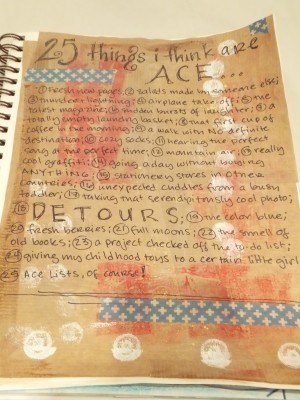 25 things i think are
ACE...
① fresh new pages; ② salads made by someone else;
③ thunder & lightning; ④ airplane take-off; ⑤ the
latest magazine; ⑥ sudden bursts of laughter; ⑦ a
totally empty laundry basket; ⑧ that first cup of
coffee in the morning; ⑨ a walk with no definite
destination; ⑩ cozy socks; ⑪ hearing the perfect
song at the perfect time; ⑫ mountain air; ⑬ really
cool graffiti; ⑭ going a day without buying
ANYTHING; ⑮ stationery stores in other
countries; ⑯ unexpected cuddles from a busy
toddler; ⑰ taking that serendipitously cool photo;
⑱ DETOURS; ⑲ the color blue;
⑳ fresh berries; ㉑ full moons; ㉒ the smell of
old books; ㉓ a project checked off the to-do list;
㉔ giving my childhood toys to a certain little girl
㉕ Ace Lists, of course!